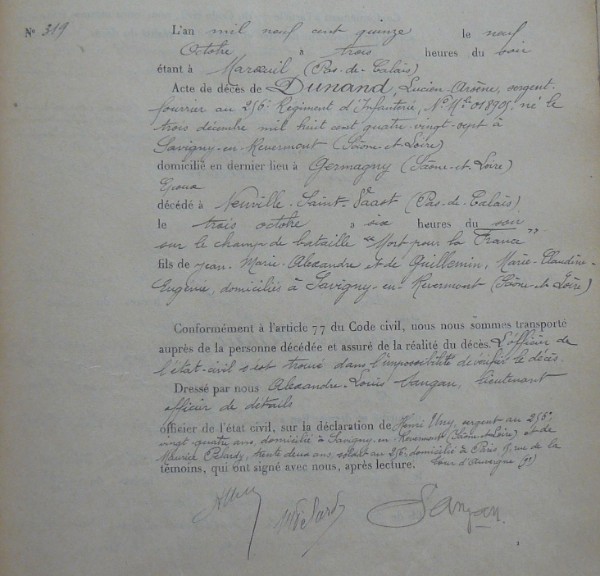 N° 319
L'an mil neuf cent quinze le neuf
Octobre à trois heures du soir
étant à Marœuil (Pas-de-Calais)
Acte de décès de DUNAND, Lucien Arsène, sergent-
fourrier au 256e Régiment d'Infanterie, N° Mle 018905, né le
trois décembre mil huit cent quatre-vingt-sept à
Savigny-en-Revermont (Saône et Loire)
domicilié en dernier lieu à Germagny (Saône-et-Loire)
Epoux
décédé à Neuville-Saint-Vaast (Pas-de-Calais)
le trois octobre à six heures du soir
sur le champ de bataille "Mort pour la France"
fils de Jean-Marie-Alexandre et de Guillemin, Marie-Claudine-
Eugénie, domiciliés à Savigny-en-Revermont (Saône-et-Loire)
Conformément à l'article 77 du Code civil, nous nous sommes transporté
auprès de la personne décédée et assuré de la réalité du décès. L'officier de
l'état-civil s'est trouvé dans l'impossibilité de vérifier le décès.
Dressé par nous Alexandre-Louis Sangan, lieutenant
officier de détails
officier de l'état civil, sur la déclaration de Henri Uny, sergent au 256e
vingt-quatre ans, domicilié à Savigny-en-Revermont (Saône-et-Loire) et de
Maurice Pelardy, trente deux ans, soldat au 256e domicilié à Paris 9, rue de la
Tour d'Auvergne (9e)
témoins, qui ont signé avec nous, après lecture.
Sangan